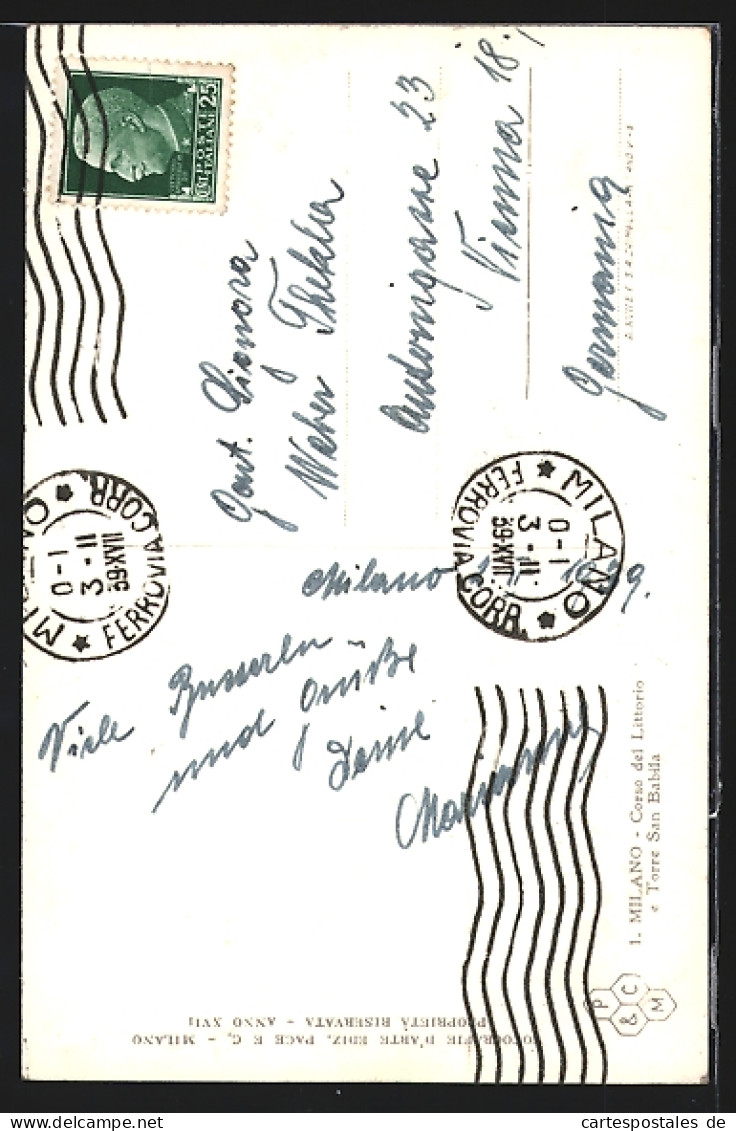 POSTE
ITALIANE
25
MILANO
0-1
3-11
39·XVII
FERROVIA CORR.
Milano 1939.
Viele Busserln
und Grüße
Deine
Marianne
Gent. Signora
Weber Thekla
Vienna 18.
Germania
MILANO
0-1
3-11
39·XVII
FERROVIA CORR.
1. MILANO - Corso del Littorio
e Torre San Babila
P & C M
FOTOGRAFIE D'ARTE EDIZ. PACE E C. - MILANO
PROPRIETÀ RISERVATA - ANNO XVII
www.cartespostales.de